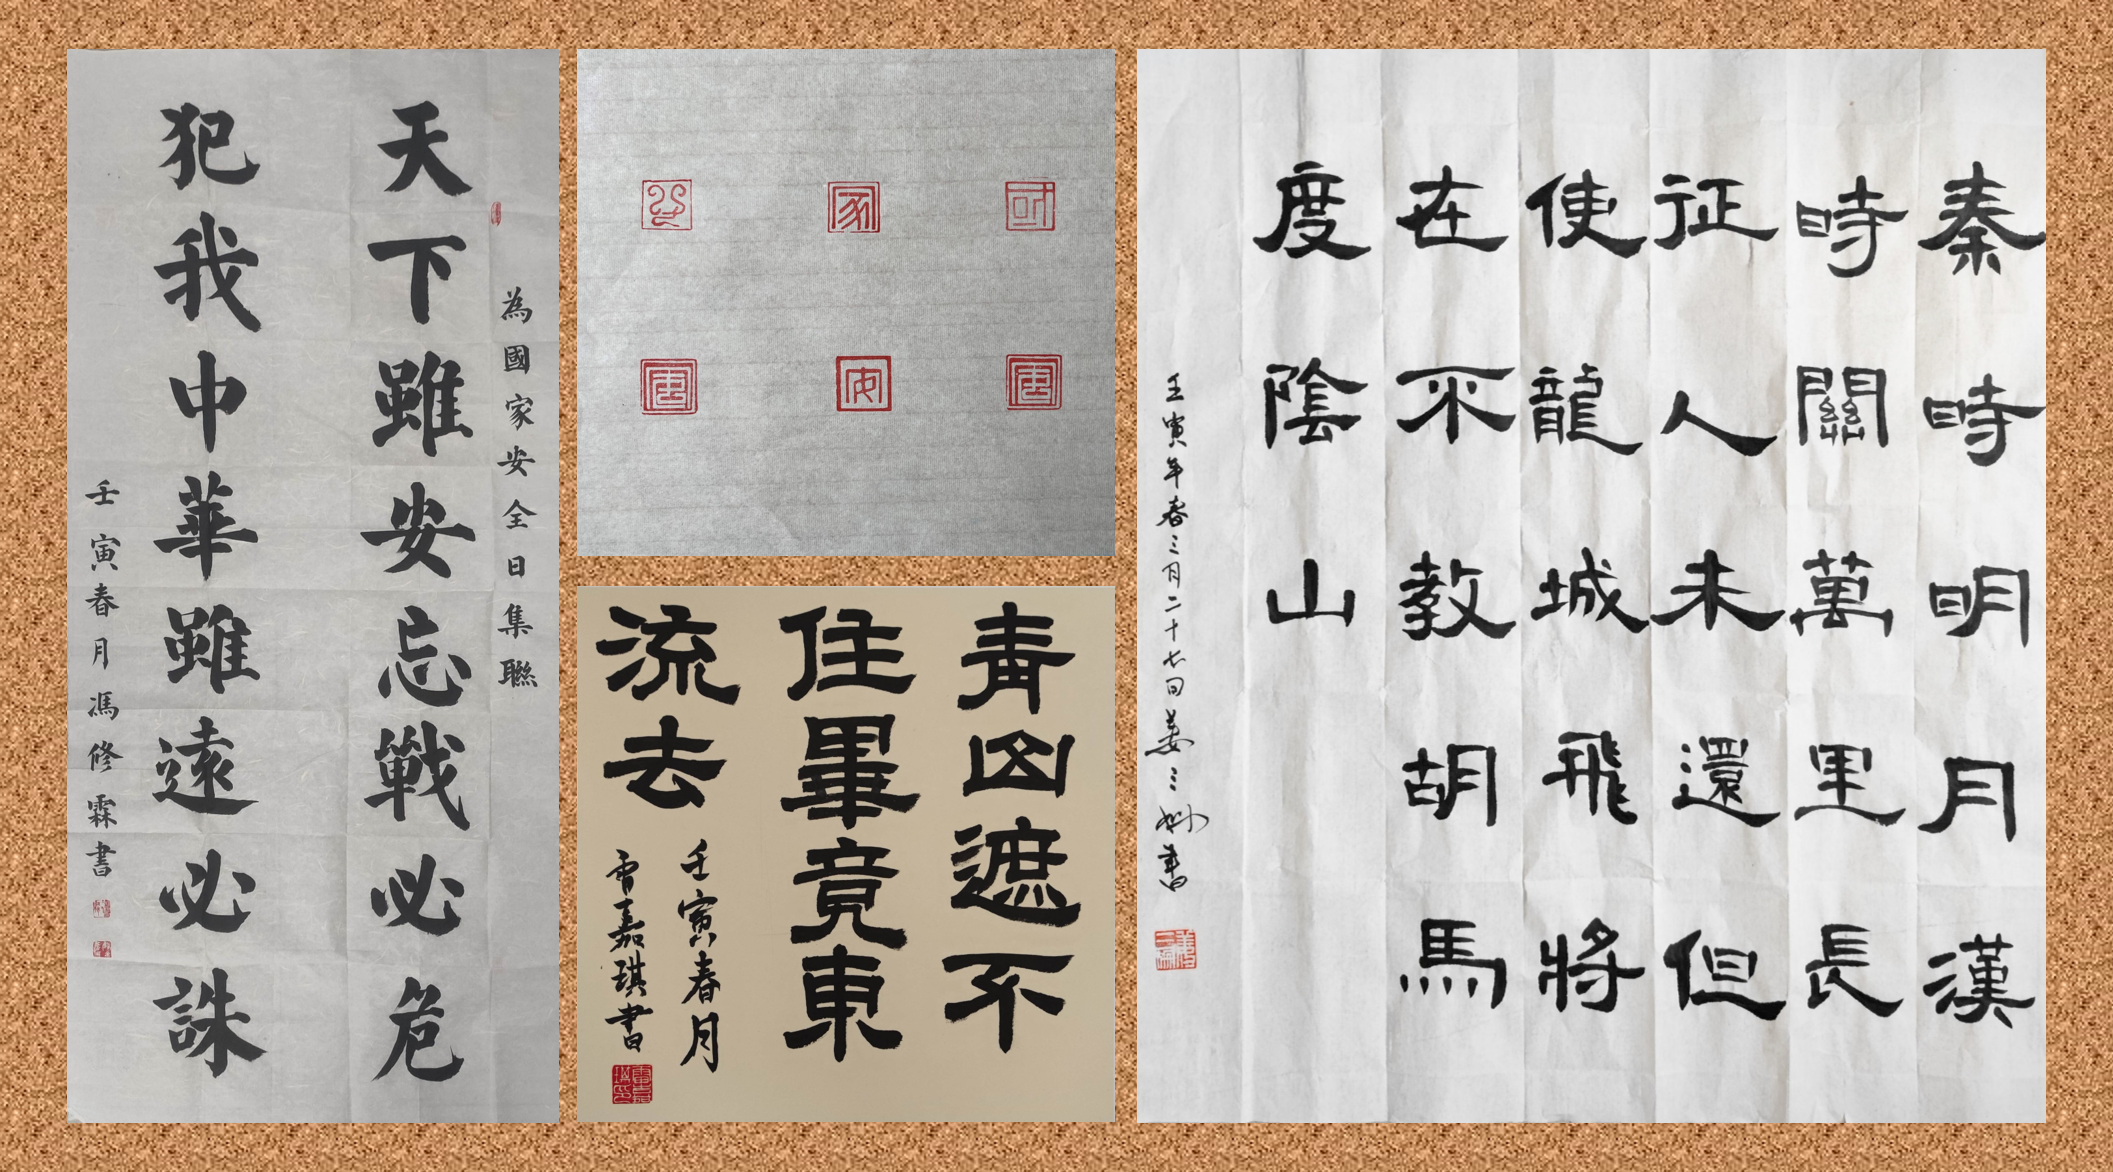 為國家安全日集聯
天下雖安忘戰必危
犯我中華雖遠必誅
壬寅春月馮修霖書
家
安
青山遮不
住畢竟東
流去
壬寅春月
雷嘉琪書
秦時明月漢
時關萬里長
征人未還但
使龍城飛將
在不教胡馬
度陰山
壬寅年春三月二十七日姜三書